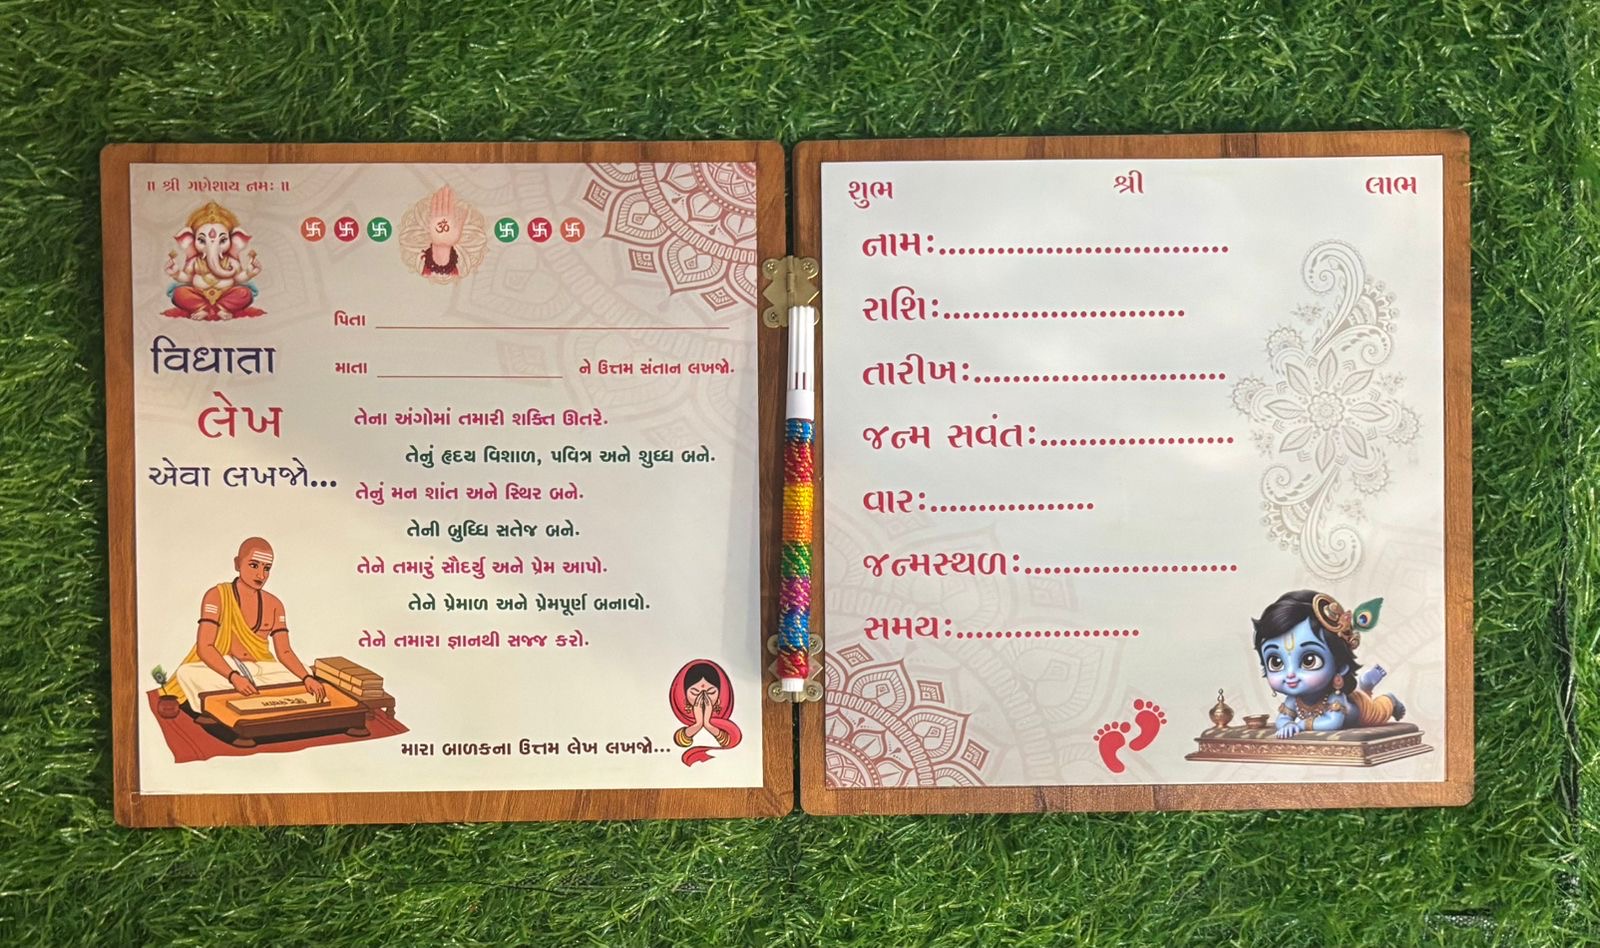 ॥ શ્રી ગણેશાય નમઃ ॥
ॐ
પિતા ____________________
માતા ____________________ ને ઉત્તમ સંતાન લખજો.
વિધાતા
લેખ
એવા લખજો...
તેના અંગોમાં તમારી શક્તિ ઊતરે.
તેનું હૃદય વિશાળ, પવિત્ર અને શુધ્ધ બને.
તેનું મન શાંત અને સ્થિર બને.
તેની બુધ્ધિ સતેજ બને.
તેને તમારું સૌદર્યુ અને પ્રેમ આપો.
તેને પ્રેમાળ અને પ્રેમપૂર્ણ બનાવો.
તેને તમારા જ્ઞાનથી સજ્જ કરો.
મારા બાળકના ઉત્તમ લેખ લખજો...
શુભ શ્રી લાભ
નામ:..............................
રાશિ:.........................
તારીખ:..........................
જન્મ સવંત:....................
વાર:.................
જન્મસ્થળ:......................
સમય:...................